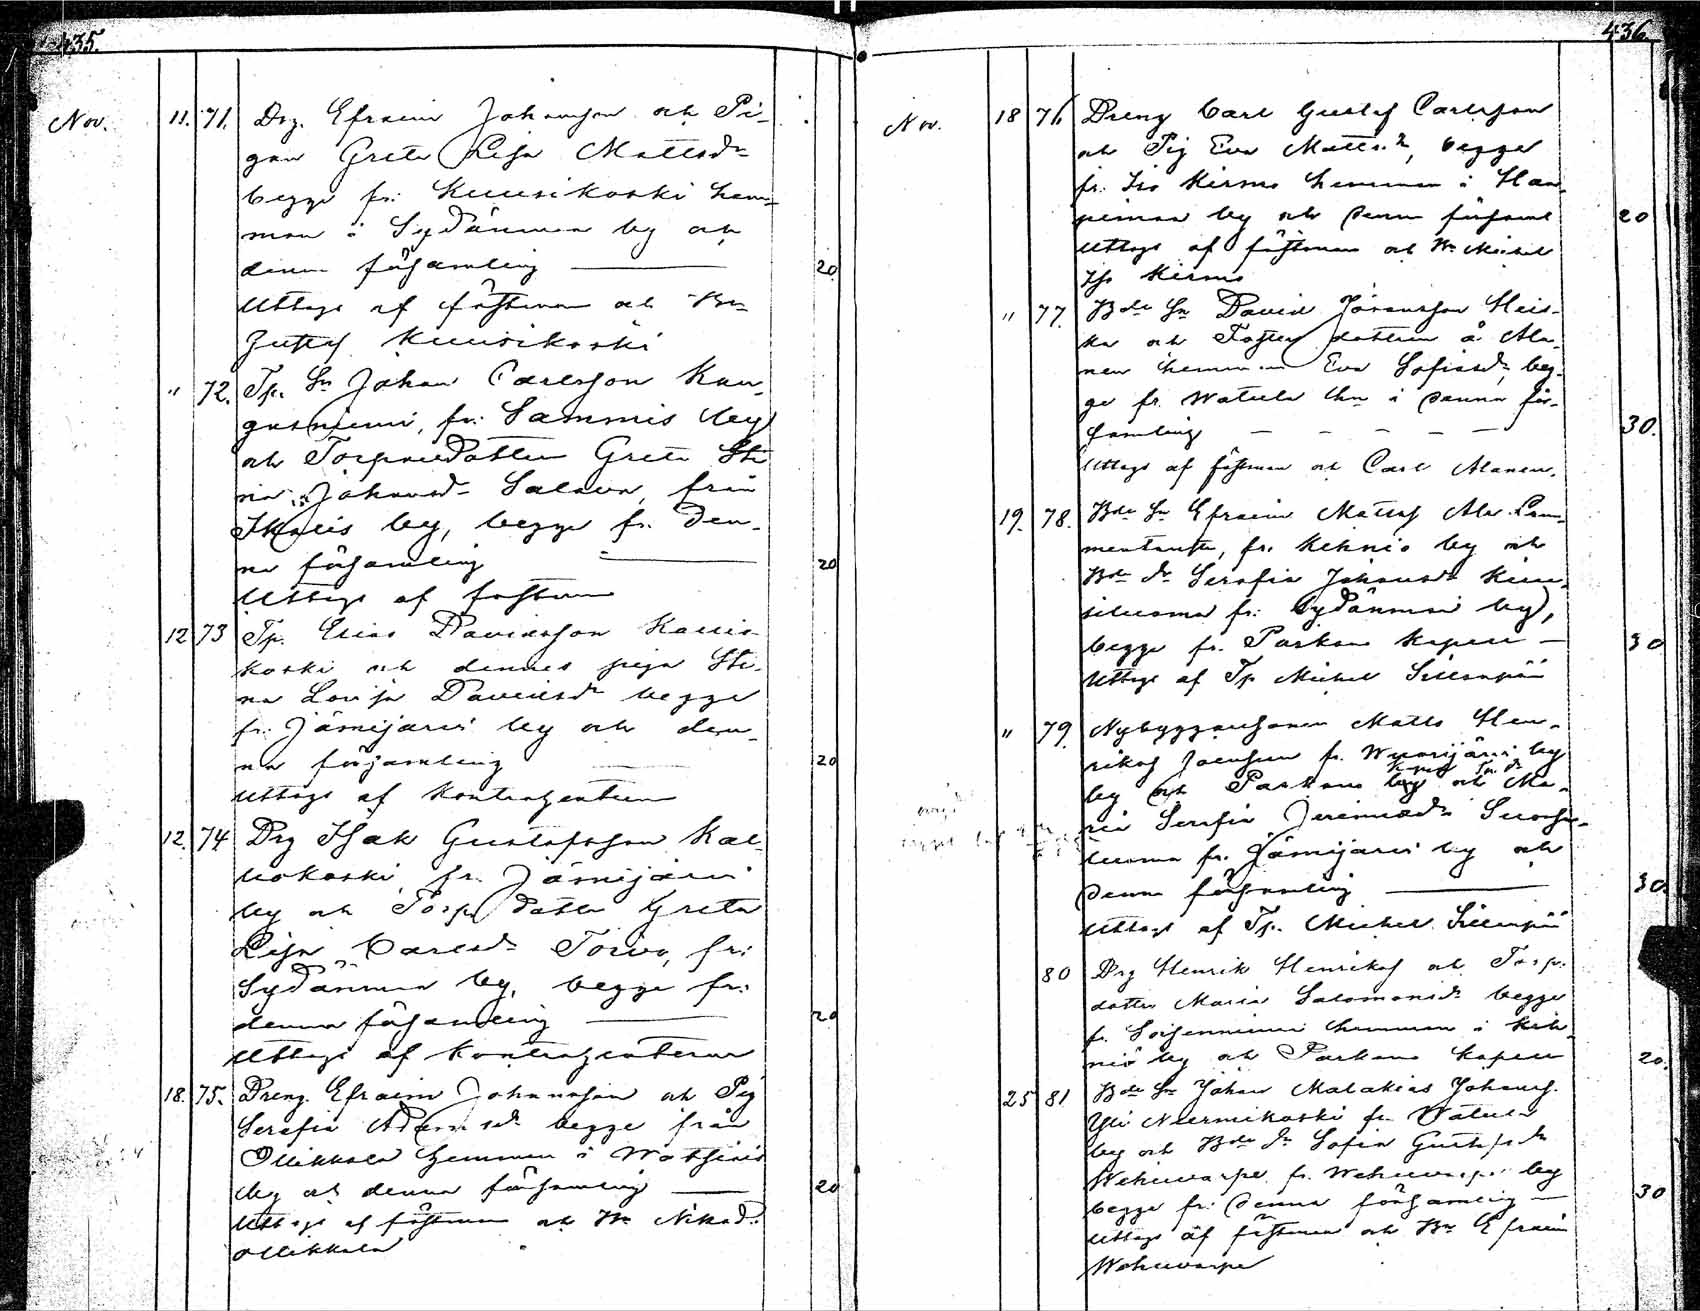 435.
Nov. 11. 71. Drg. Efraim Johansson och Pi-
gan Greta Lisa Mattsdr
begge fr: Kuusikoski hem-
man i Sydänmaa by och
denna församling — 20
Uttogs af fästman och Bn
Gustaf Kuusikoski
" 72. Tp. Sn Johan Carlsson Kan-
gasniemi, fr: Sammis by
och Torparedottern Greta Sti
na Johansd. Salava, från
Ikalis by, begge fr. den-
na församling — 20
Uttogs af fästman
12 73 Tp. Elias Davidsson
koski och dennes piga Sti-
na Lovisa Davidsdr begge
fr: Jämijärvi by och den-
na församling — 20
Uttogs af Kontrahenterna
12. 74 Drg Isak Gustafsson Kal-
liokoski, fr. Jämijärvi
by och Torp. dotter Greta
Lisa Carlsdr Toivo, fr:
Sydänmaa by, begge fr:
denna församling — 20
Uttogs af Kontrahenterna
18. 75. Dreng Efraim Johansson och Pig
Serafia Adamsdr begge från
Ollikkala hemman i Watsiais
by och denna församling — 20
Uttogs af fästman och Bn Nikod.
Ollikkala
436
Nov. 18 76 Dreng Carl Gustaf Carlsson
och Pig Eva Mattsdr, begge
fr. Iso Kirmo hemman i Haa-
pimaa by och denna församl 20
Uttogs af fästman och Bn Michel
Iso Kirmo
" 77. Bde Sn David Johansson Heis-
ka och Foster dottern å Ala-
nen hemman Eva Sofiasdr, beg-
ge fr. Watula by i denna för-
samling — — — — — 30.
Uttogs af fästman och Carl Alanen.
19. 78. Bde Sn Efraim Mattss Ala-Lam-
mentausta, fr. Kihniö by och
Bde dr Serafia Johansdr
fr: Sydänmaa by,
begge fr. Parkano Kapell — 30
Uttogs af Tp Michel Sillanpää
" 79. Nybyggaresonen Matts Hen-
rikss fr. Wuorijärvi by
by och Parkano by Kapell och Tp. dr Ma-
ria Serafia Jeremiædr
luoma fr. Jämijärvi by och
denna församling — 30.
Uttogs af Tp. Michel Sillanpää
80 Drg Henrik Henrikss och Torp.
dotter Maria Salomonsdr begge
fr. hemman i Kih-
niö by och Parkano kapell 20.
25 81 Bde Sn Johan Malakias Johanss.
Yli Niemikoski fr. Watula
by och Bde dr Sofia Gustafsdr
Wehuvarpe fr. Wehuvarpe by
begge fr: denna församling — 30
Uttogs af fästman och Bn Efraim
Wehuvarpe